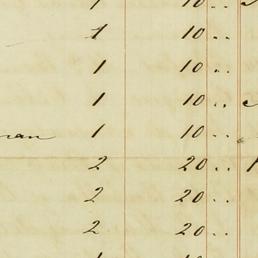 1 10 ..
1 10 ..
1 10 ..
1 10 ..
1 10 ..
2 20 ..
2 20 ..
2 20 ..